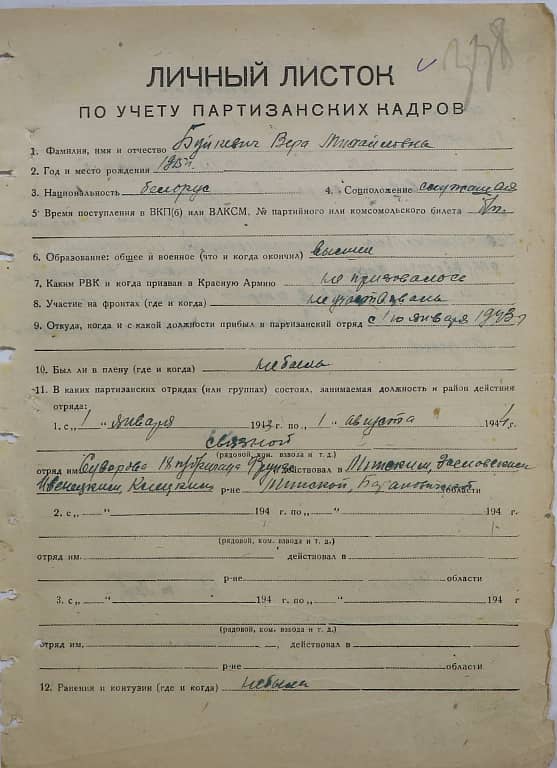 338
ЛИЧНЫЙ ЛИСТОК
ПО УЧЕТУ ПАРТИЗАНСКИХ КАДРОВ
1. Фамилия, имя и отчество Буйкевич Вера Михайловна
2. Год и место рождения
3. Национальность белорус 4. Соцположение служащая
5. Время поступления в ВКП(б) или ВЛКСМ, № партийного или комсомольского билета б/п.
6. Образование: общее и военное (что и когда окончил) высшее
7. Каким РВК и когда призван в Красную Армию не призывалась
8. Участие на фронтах (где и когда) не участвовала
9. Откуда, когда и с какой должности прибыл в партизанский отряд с 1го января 1943
10. Был ли в плену (где и когда) не была
11. В каких партизанских отрядах (или группах) состоял, занимаемая должность и район действия
отряда:
1. с „1“ января 1943 г. по „1“ августа 1944 г.
связной
(рядовой, ком. взвода и т. д.)
отряд им. Суворова Фрунзе действовал в Минском, Заславском
Ивенецком, р-не Минской, Барановичской области
2. с „ “ 194 г. по „ “ 194 г.
(рядовой, ком. взвода и т. д.)
отряд им. действовал в
р-не области
3. с „ “ 194 г. по „ “ 194 г
(рядовой, ком. взвода и т. д.)
отряд им. действовал в
р-не области
12. Ранения и контузии (где и когда) не была